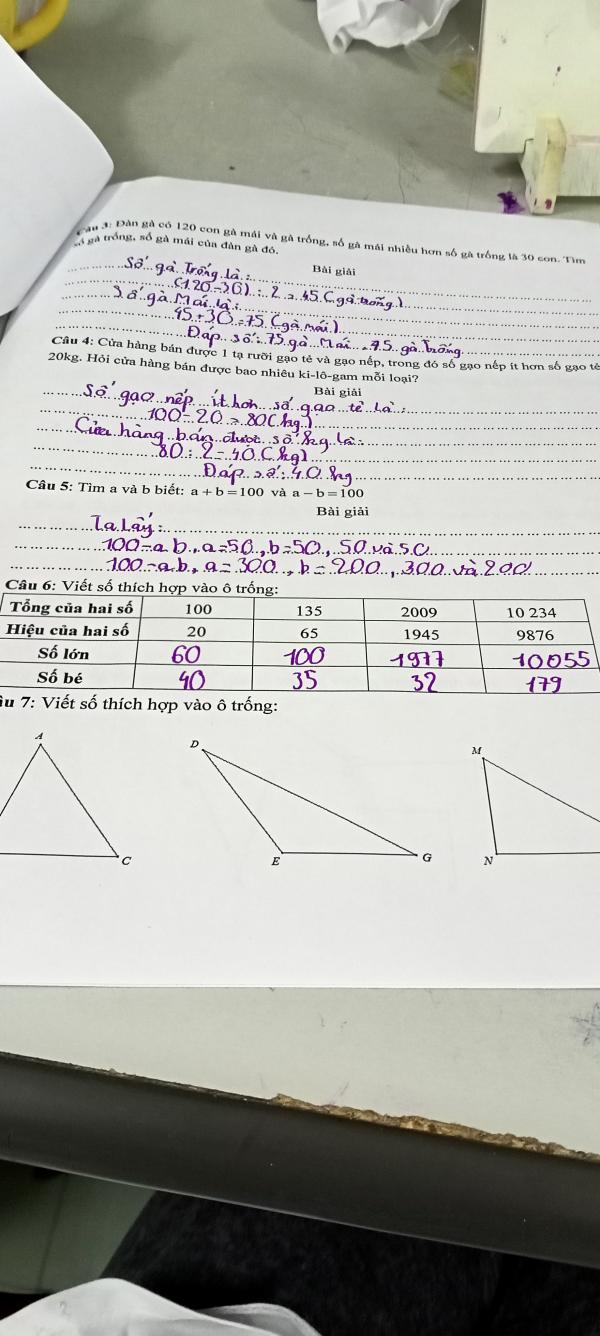 Câu 3: Đàn gà có 120 con gà mái và gà trống, số gà mái nhiều hơn số gà trống là 30 con. Tìm
số gà trống, số gà mái của đàn gà đó.
Bài giải
Số gà Trống là:
(120-30) : 2 = 45 (gà trống)
Số gà Mái là:
45+30=75 (gà mái)
Đáp số: 75 gà Mái 45 gà Trống
Câu 4: Cửa hàng bán được 1 tạ rưỡi gạo tẻ và gạo nếp, trong đó số gạo nếp ít hơn số gạo tẻ
20kg. Hỏi cửa hàng bán được bao nhiêu ki-lô-gam mỗi loại?
Bài giải
Số gạo nếp ít hơn số gạo tẻ là:
100-20 = 80 (kg)
Cửa hàng bán được số kg là:
80 : 2 = 40 (kg)
Đáp số: 40 kg
Câu 5: Tìm a và b biết: a + b = 100 và a − b = 100
Bài giải
Ta lấy:
100-a b, a=50, b=50, 50 và 50
100-ab, a=300, b=200, 300 và 200
Câu 6: Viết số thích hợp vào ô trống:
Tổng của hai số 100 135 2009 10 234
Hiệu của hai số 20 65 1945 9876
Số lớn 60 100 1977 10055
Số bé 40 35 32 179
u 7: Viết số thích hợp vào ô trống:
A D M
C E G N